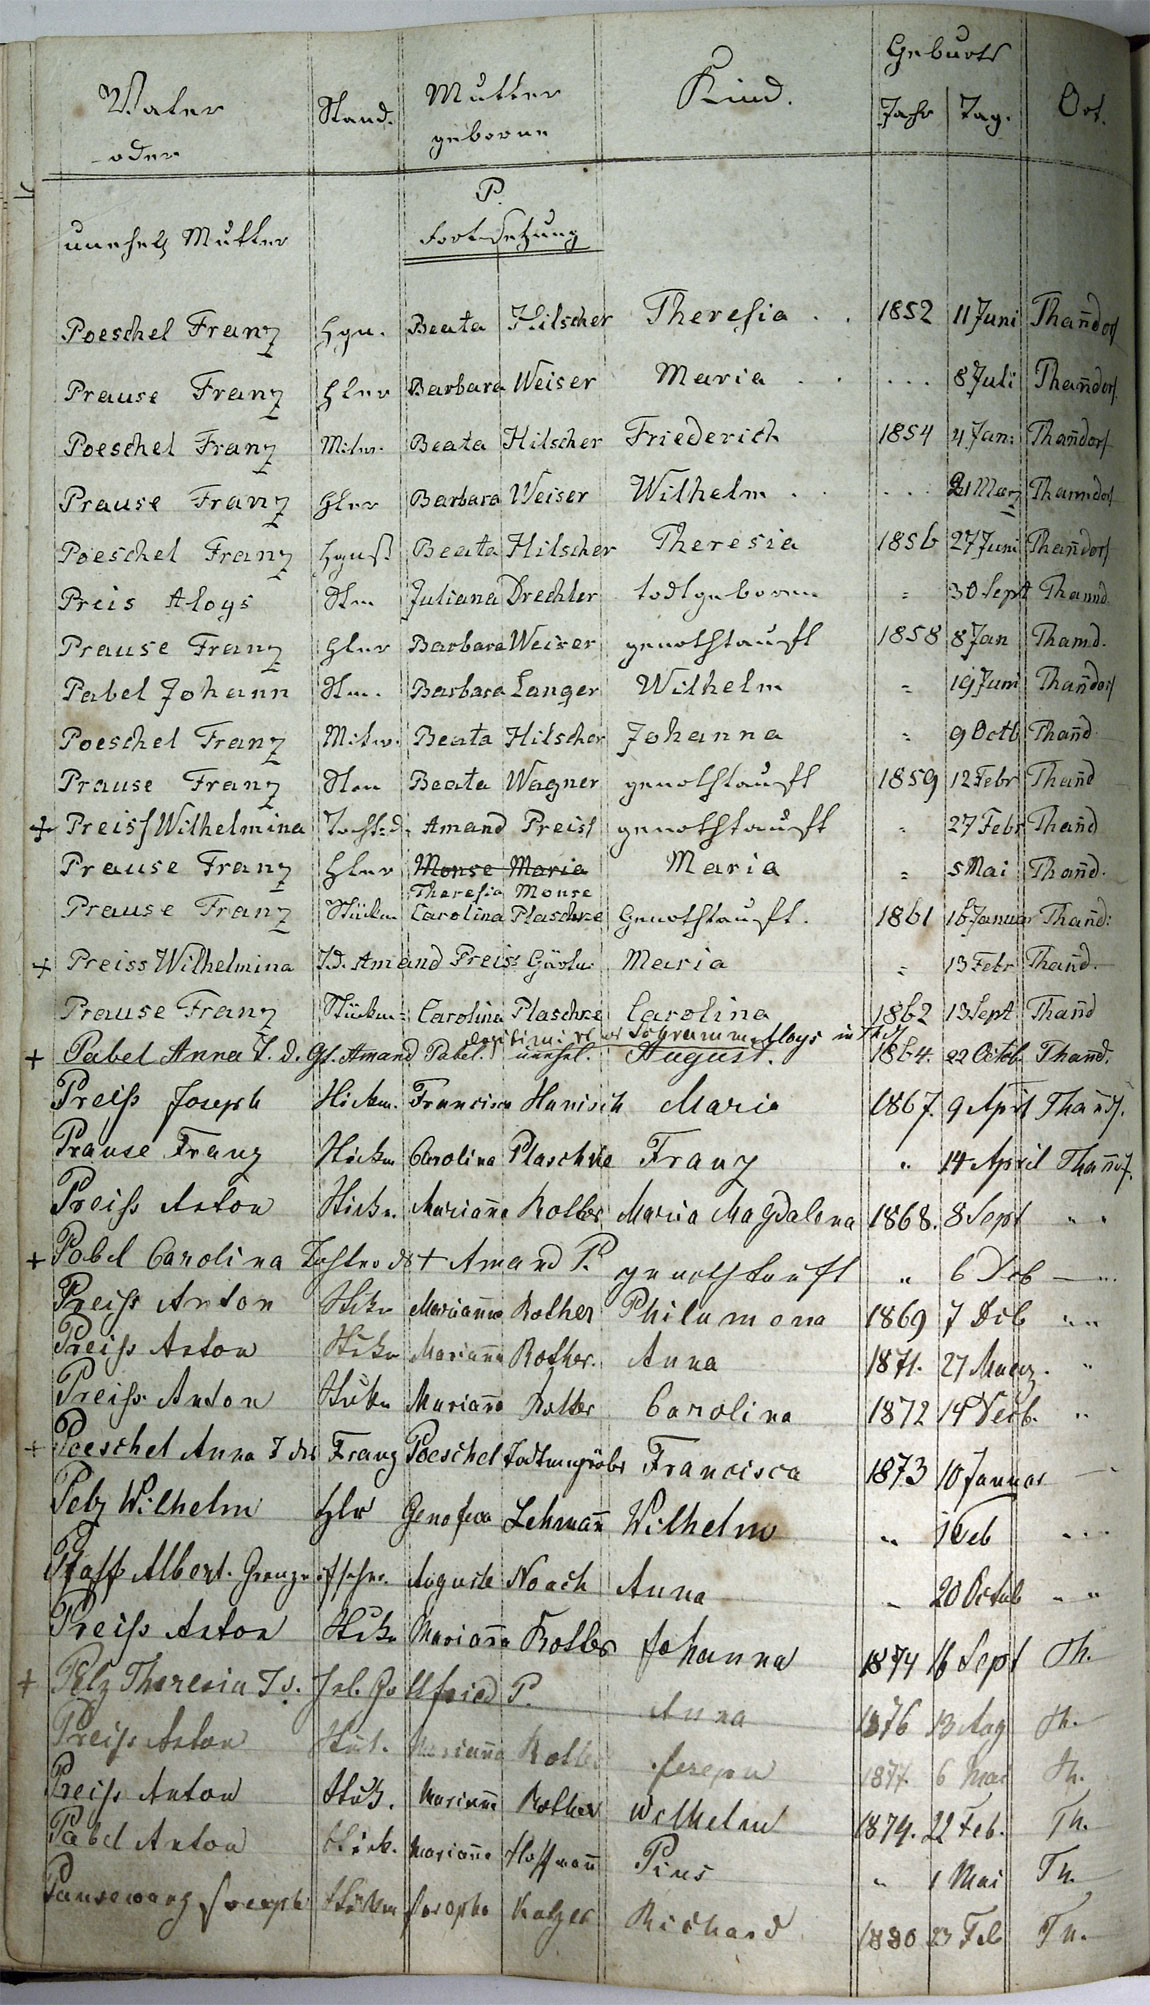 Geburts
Vater Stand. Mutter Kind. Jahr Tag. Ort.
oder geborne
P.
unehel. Mutter Fortsetzung
Poeschel Franz Beata Hilscher Theresia . . 1852 11 Juni Than̄dorf
Prause Franz Barbara Weiser Maria . . . . . 8 Juli Than̄dorf
Poeschel Franz Mitw. Beata Hilscher Friederich 1854 4 Jan: Than̄dorf
Prause Franz Barbara Weiser Wilhelm . . . . . 21 Marz Thanndorf
Poeschel Franz Beata Hilscher Theresia 1856 27 Juni Than̄dorf
Preis Aloys Juliana Drechler todtgeboren = 30 Sept Thannd.
Prause Franz Barbara Weiser genothtauft 1858 8 Jan Thamd.
Pabel Johann Barbara Langer Wilhelm = 19 Juni Than̄dorf
Poeschel Franz Mitw. Beata Hilscher Johanna = 9 Octb Than̄d
Prause Franz Beata Wagner genothtauft 1859 12 Febr Than̄d
+ Preiss Wilhelmina Tocht. d. Amand Preiss genothtauft = 27 Febr Than̄d
Prause Franz Monse Maria Maria = 5 Mai Than̄d.
Theresia Monse
Prause Franz Stückm Carolina Plaschke Genothtauft. 1861 16 Januar Than̄d:
+ Preiss Wilhelmina T. d. Amand Preiss Gärtn: Maria = 13 Febr Than̄d.
Prause Franz Stückm: Carolina Plaschke Carolina 1862 13 Sept Than̄d
Schramm Aloys in
+ Pabel Anna T. d. Amand Pabel. unehel. August. 1864. 22 Octob Than̄d.
Preiss Joseph Stückm. Francisca Hanisch Maria 1867. 9 April Than̄df.
Prause Franz Stückm Carolina Plaschke Franz " 14 April Than̄df.
Preiss Anton Stückm. Marian̄a Rother Maria Magdalena 1868. 8 Sept " "
+ Pabel Carolina Tochter d + Amand P. genothtauft " 6 Deb — "
Preiss Anton Stückm Marianna Rother Philumena 1869 7 Deb " "
Preiss Anton Stückm Marian̄a Rother. Anna 1871. 27 Maerz. "
Preiss Anton Stückm Marian̄a Rother Carolina 1872 14 Decb. "
+ Poeschel Anna T des Franz Poeschel Todtengräber Francisca 1873 10 Januar —
Pelz Wilhelm Genofeva Lehman̄ Wilhelm " 1 Feb " "
Pfaff Albert. Auguste Noach Anna " 20 Octob " "
Preiss Anton Stückm Marian̄a Rother Johanna 1874 16 Sept Th.
+ Pelz Theresia T d. Gottfried P. Anna 1876 13 Aug Th.
Preiss Anton Stück. Marian̄a Rother Joseph 1877. 6 Mai Th.
Preiss Anton Stück. Marian̄a Rother Wilhelm 1879. 22 Feb. Th.
Pabel Anton Stück. Marian̄a Hoffman̄ Pius " 1 Mai Th.
Pansewang Joseph Stückm Josepha Katzer Richard 1880 23 Feb Th.